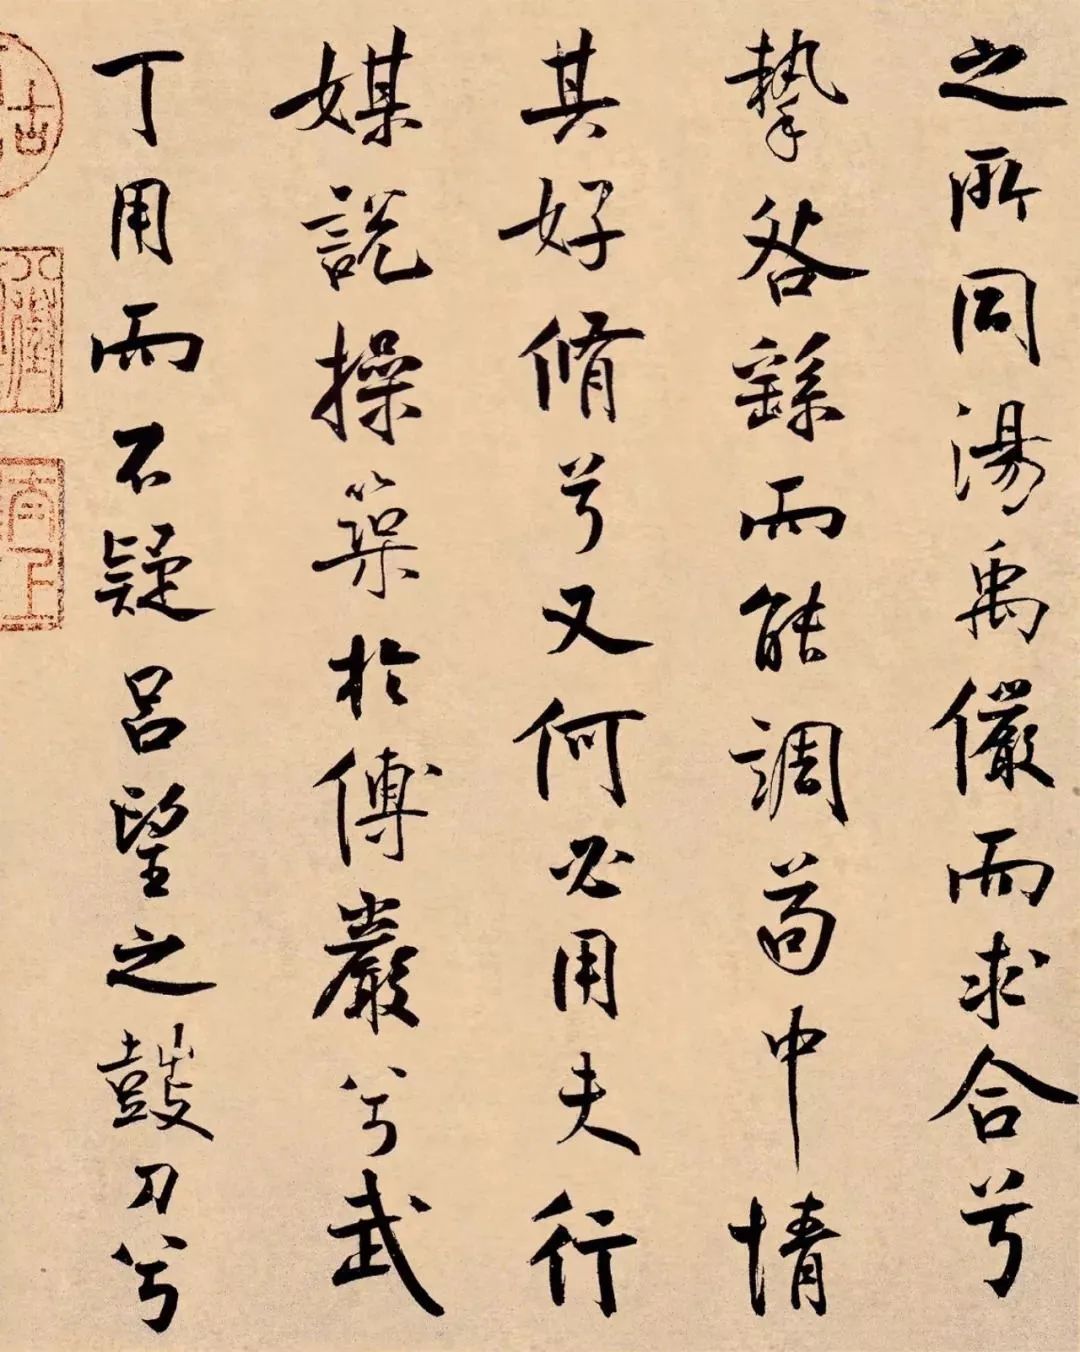 之所同湯禹儼而求合兮
摯咎繇而能調苟中情
其好脩兮又何必用夫行
媒說操築於傅巖兮武
丁用而不疑呂望之鼓刀兮
古